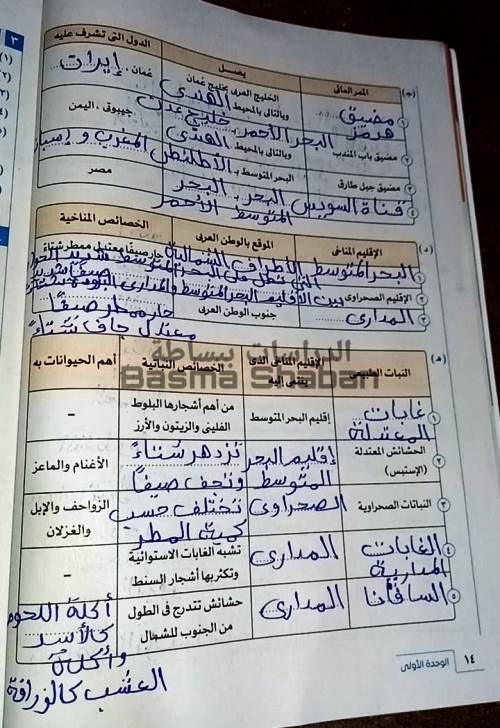 ٣
(ج)
الممر المائى
يصل
الدول التى تشرف عليه
١ مضيق هرمز
الخليج العربى بخليج عُمان وبالتالى بالمحيط الهندى
عُمان ، إيران
٢ مضيق باب المندب
البحر الأحمر بـ خليج عدن وبالتالى بالمحيط الهندى
جيبوتى ، اليمن
٣ مضيق جبل طارق
البحر المتوسط بـ الأطلنطى
المغرب وإسبا
٤ قناة السويس
البحر المتوسط بـ البحر الأحمر
مصر
(د)
الإقليم المناخى
الموقع بالوطن العربى
الخصائص المناخية
١ البحر المتوسط
الأطراف الشمالية التى تطل على البحر المتوسط
حار صيفًا معتدل ممطر شتاءً
٢ الإقليم الصحراوى
بين الإقليم البحر المتوسط والمدارى
شديد الحرارة صيفًا
٣ المدارى
جنوب الوطن العربى
حار ممطر صيفًا
معتدل جاف شتاءً
الدراسات ببساطة
Basma Shaban
(هـ)
النبات الطبيعى
الإقليم المناخى الذى ينتمى إليه
الخصائص النباتية
أهم الحيوانات به
١ غابات المعتدلة
إقليم البحر المتوسط
من أهم أشجارها البلوط الفلينى والزيتون والأرز
–
٢ الحشائش المعتدلة (الإستبس)
إقليم البحر المتوسط
تزدهر شتاءً وتجف صيفًا
الأغنام والماعز
٣ النباتات الصحراوية
الصحراوى
تختلف حسب كمية المطر
الزواحف والإبل والغزلان
٤ الغابات المدارية
المدارى
تشبه الغابات الاستوائية وتكثر بها أشجار السنط
–
٥ السافانا
المدارى
حشائش تتدرج فى الطول من الجنوب للشمال
أكلة اللحوم
كالأسد
وأكلة
العشب كالزرافة
١٤
الوحدة الأولى